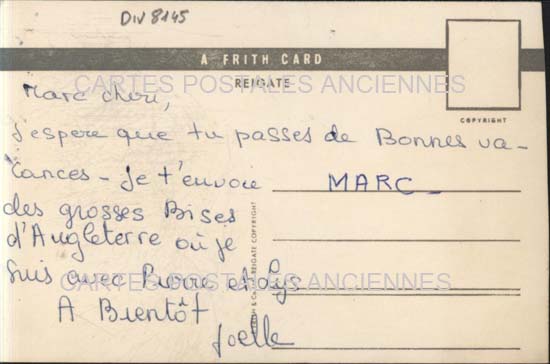 DIV 8145
A FRITH CARD
REIGATE
CARTES POSTALES ANCIENNES
COPYRIGHT
Marc chéri,
J'espère que tu passes de Bonnes va-
cances - Je t'envoie
MARC
des grosses Bises
d'Angleterre où je
suis avec Pierre et Lys
CARTES POSTALES ANCIENNES
A Bientôt
Joelle
REIGATE COPYRIGHT